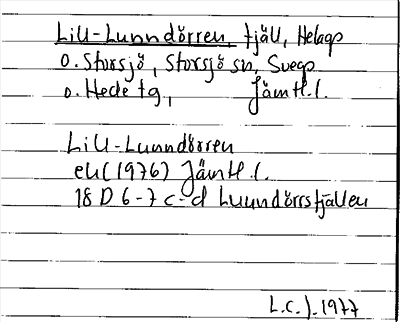 Lill-Lunndörren, fjäll, Helags
o. Storsjö, Storsjö sn, Svegs
o. Hede tg, Jämtl.l.
Lill-Lunndörren
ek (1976) Jämtl.l.
18 D 6-7 c-d Lunndörrsfjällen
L.C.J. 1977